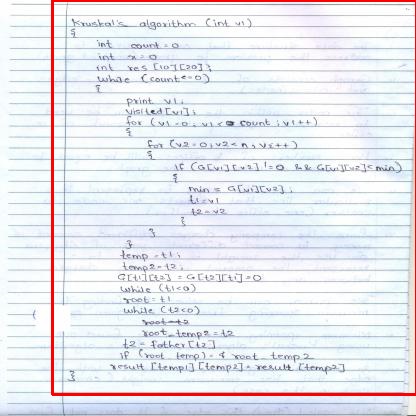 Kruskal's algorithm (int v1)
{
int count=0
int x=0
int res [10][20];
while (count<=0)
{
print v1;
visited [v1];
for (v1=0; v1< count; v1++)
{
for (v2=0; v2<n; v2++)
{
if (G[v1][v2] !=0 && G[v1][v2]<min)
{
min = G[v1][v2];
t1=v1
t2=v2
}
}
}
temp=t1;
temp2=t2;
G[t1][t2] = G[t2][t1]=0
while (t1<0)
root=t1
while (t2<0)
root=t2
root_temp2=t2
t2= father[t2]
if (root temp)= root_temp2
result [temp1][temp2]=result [temp2]
}